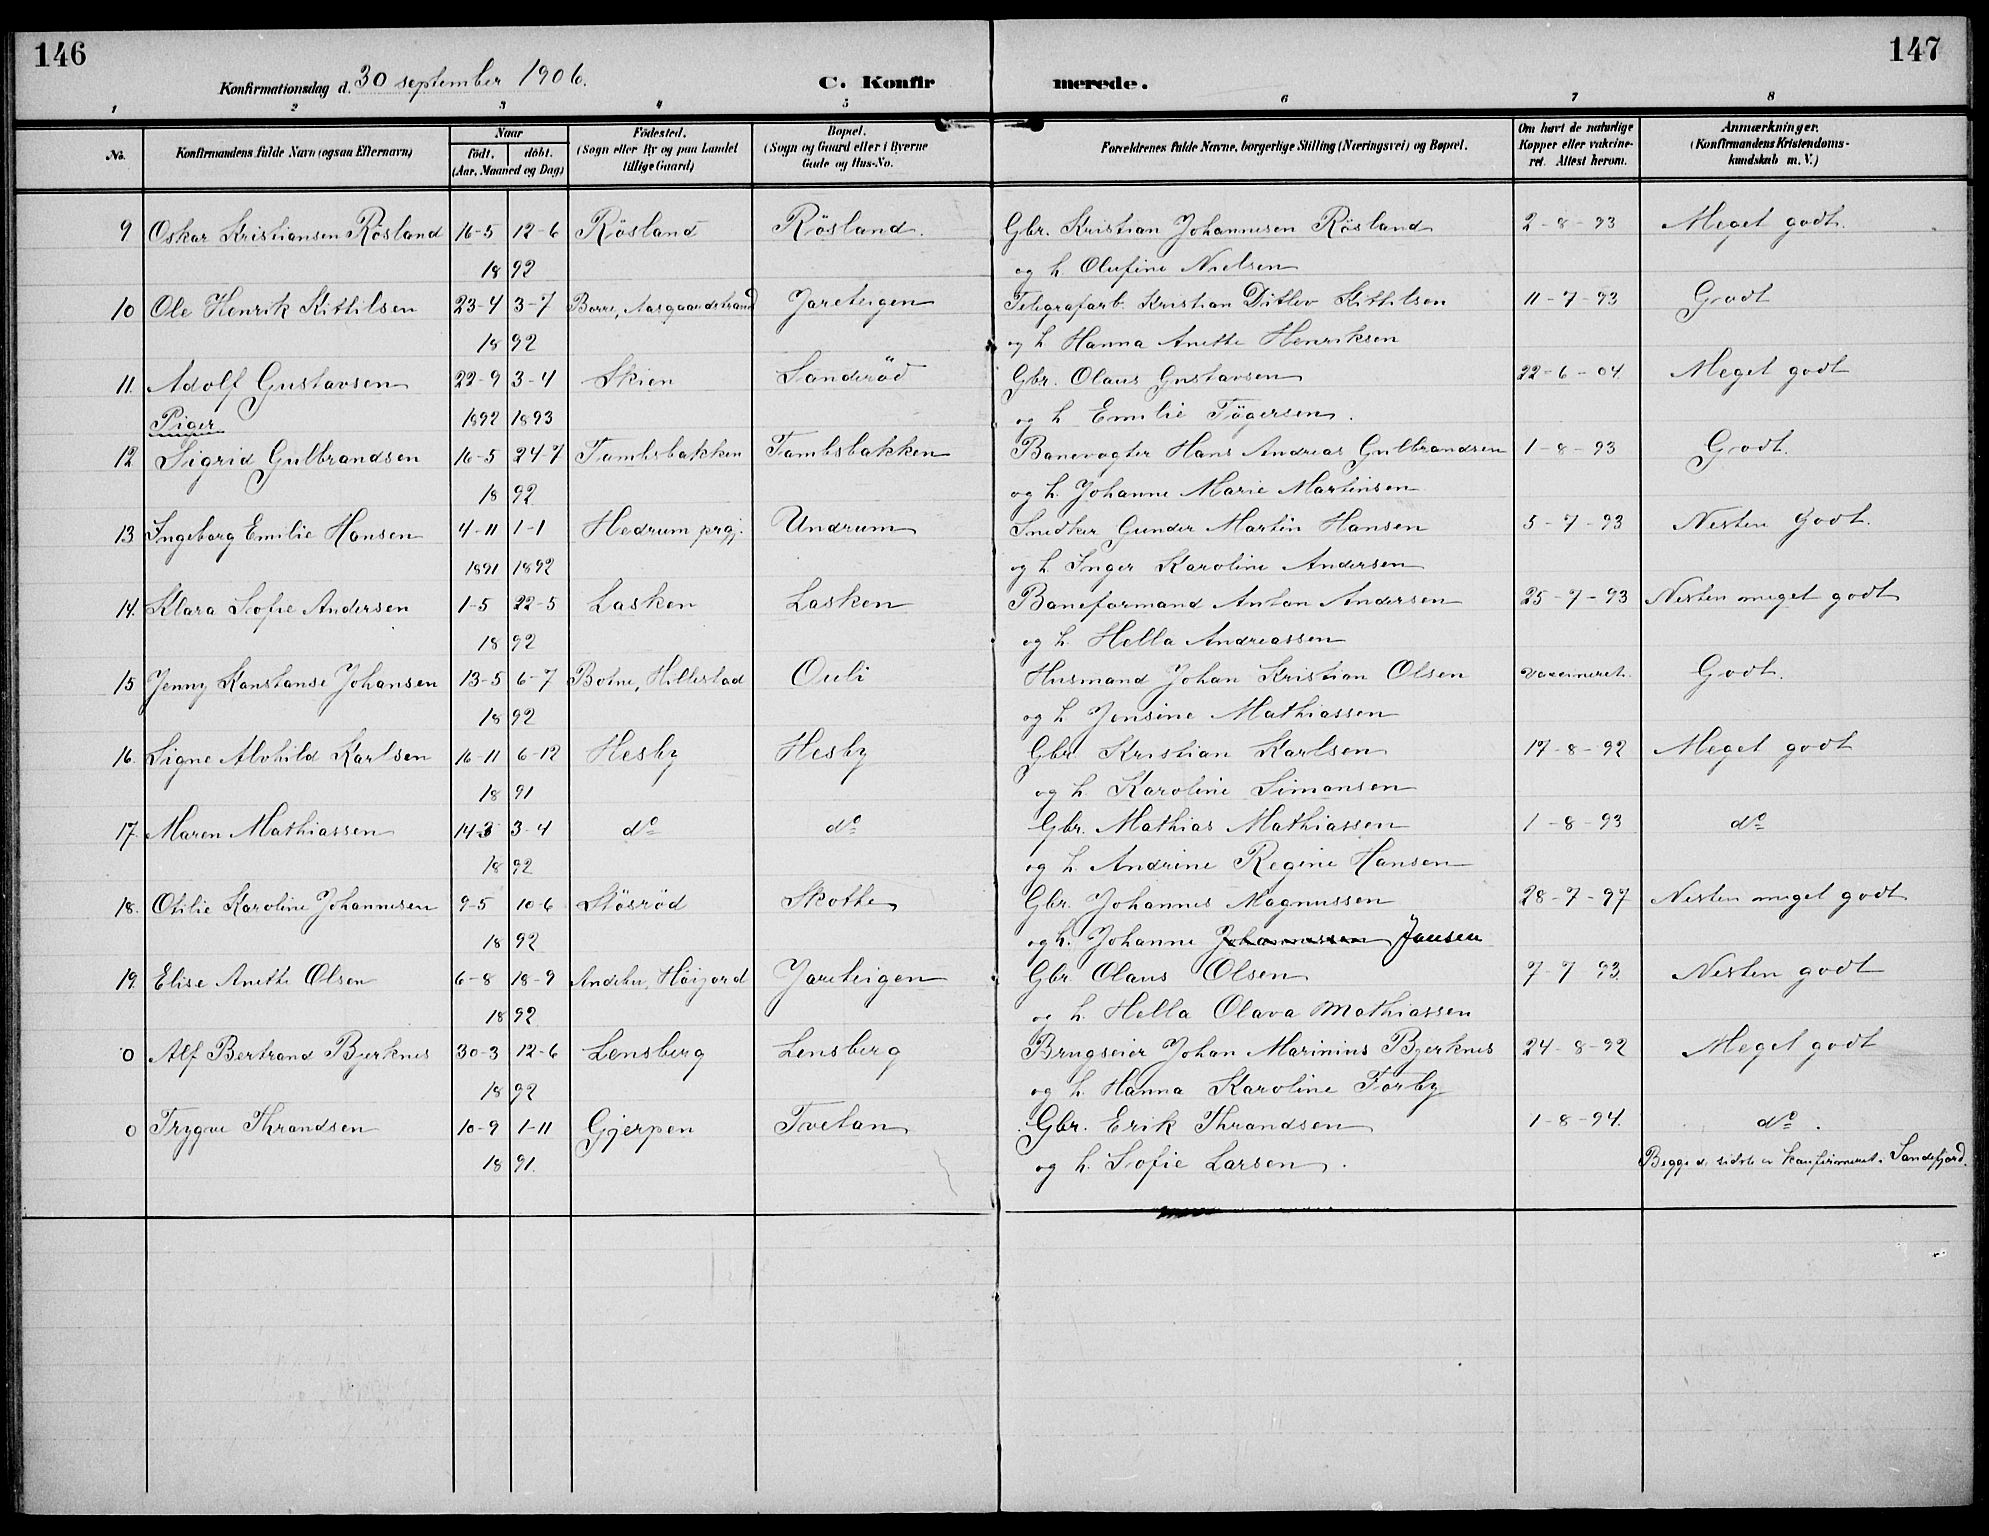 146
147
Konfirmationsdag d. 30 september 1906.
C. Konfir merede.
1 2 3 4 5 6 7 8
No.
Konfirmandens fulde Navn (ogsaa Efternavn)
Naar
födt. döbt.
(Aar, Maaned og Dag)
Födested.
(Sogn eller By og paa Landet
tillige Gaard)
Bopæl.
(Sogn og Gaard eller i Byerne
Gade og Hus-No.
Forældrenes fulde Navne, borgerlige Stilling (Næringsvei) og Bopæl.
Om havt de naturlige
Kopper eller vakcine-
ret. Attest herom.
Anmærkninger.
(Konfirmandens Kristendoms-
kundskab m. V.)
9 Oskar Kristiansen Rösland 16-5 12-6 Rösland Rösland. Gbr. Kristian Johannesen Rösland 2-8-93 Meget godt.
18 92 og h. Olufine Nielsen
10 Ole Henrik Kittilsen 23-4 3-7 Borre, Aasgaardstrand Jareteigen Telegrafarb. Kristian Ditlev Kittilsen 11-7-93 Godt
18 92 og h. Hanna Anette Henriksen
11. Adolf Gustavsen 22-9 3-4 Skien Sanderöd Gbr. Olaus Gustavsen 22-6-04. Meget godt
Piger 1892 1893 og h Emilie Tögersen.
12 Sigrid Gulbrandsen 16-5 24-7 Tambsbakken Tambsbakken Banevogter Hans Andreas Gulbrandsen 1-8-93 Godt.
18 92 og h. Johanne Marie Martinsen
13 Ingeborg Emilie Hansen 4-11 1-1 Hedrum prgj. Undrum Snedker Gunder Martin Hansen 5-7-93 Nesten Godt.
1891 1892 og h Inger Karoline Andersen
14. Klara Sofie Andersen 1-5 22-5 Lasken Lasken Baneformand Anton Andersen 25-7-93 Nesten meget godt
18 92 og h. Hella Andreassen
15 Jenny Konstanse Johansen 13-5 6-7 Botne, Hillestad Ouli Husmand Johan Kristian Olsen vaccineret. Godt.
18 92 og h Jonsine Mathiassen
16. Signe Alvhild Karlsen 16-11 6-12 Hesby Hesby Gbr. Kristian Karlsen 17-8-92 Meget godt
18 91 og h Karoline Simonsen
17. Maren Mathiassen 14-3 3-4 do do Gbr. Mathias Mathiassen 1-8-93 do
18 92 og h. Andrine Regine Hansen
18. Otilie Karoline Johannesen 9-5 10-6 Stösröd Skotte Gbr. Johannes Magnussen 28-7-97 Nesten meget godt
18 92 og h. Johanne Johannessen Jansen
19. Elise Anette Olsen 6-8 18-9 Andebu, Höijord Jareteigen Gbr Olaus Olsen 7-7-93. Nesten godt
18 92 og h. Hella Olava Mathiassen
0 Alf Bertrand Bjerknes 30-3 12-6 Lensberg Lensberg Brugseier Johan Marinius Bjerknes 24-8-92 Meget godt
18 92 og h. Hanna Karoline Forby
0 Trygve Thrandsen 10-9 1-11 Gjerpen Tvetan Gbr. Erik Thrandsen 1-8-94. do.
18 91. og h. Sofie Larsen. Begge d. sidste er konfirmeret i Sandefjord.